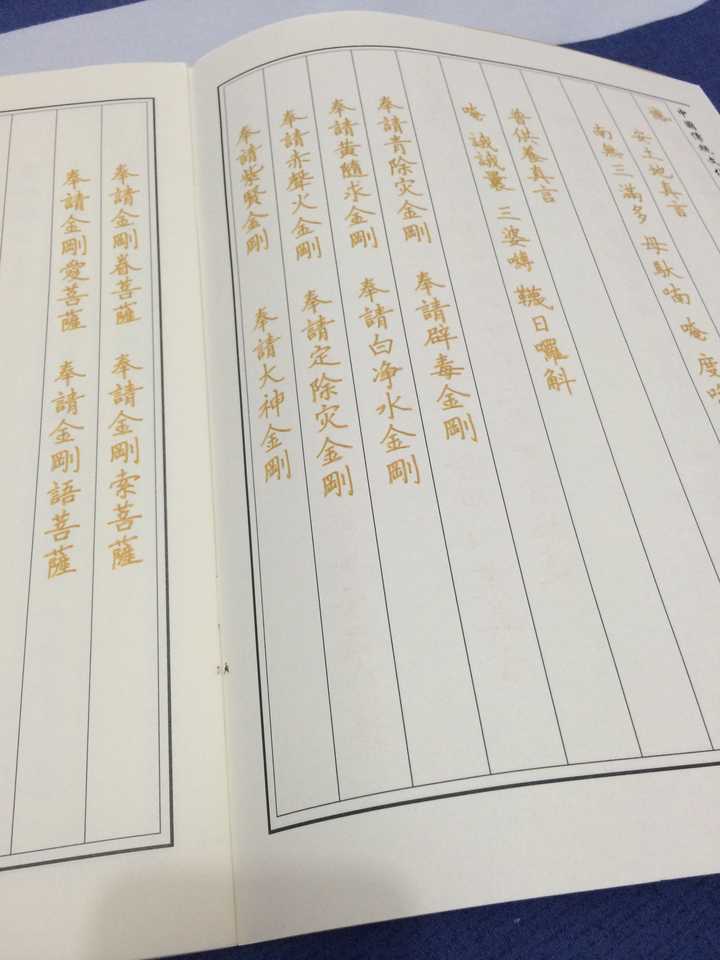 中國傳統
安土地真言
南無三滿多 母馱喃 唵 度
普供養真言
唵 誐誐曩 三婆嚩 韈日曜斛
奉請青除灾金剛 奉請辟毒金剛
奉請黃隨求金剛 奉請白净水金剛
奉請赤聲火金剛 奉請定除灾金剛
奉請紫賢金剛 奉請大神金剛
奉請金剛眷菩薩 奉請金剛索菩薩
奉請金剛愛菩薩 奉請金剛語菩薩